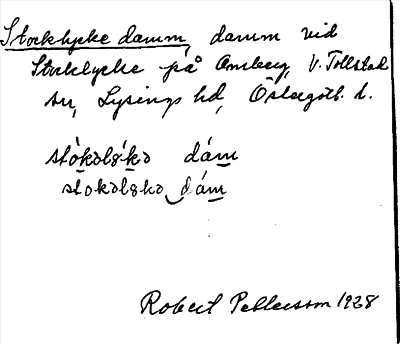 Stocklycke damm, damm vid
Stocklycke på Omberg, V. Tollstad
sn, Lysings hd, Östergötl. l.
stòkəlskə dám
stokəlskə dám
Robert Pettersson 1928